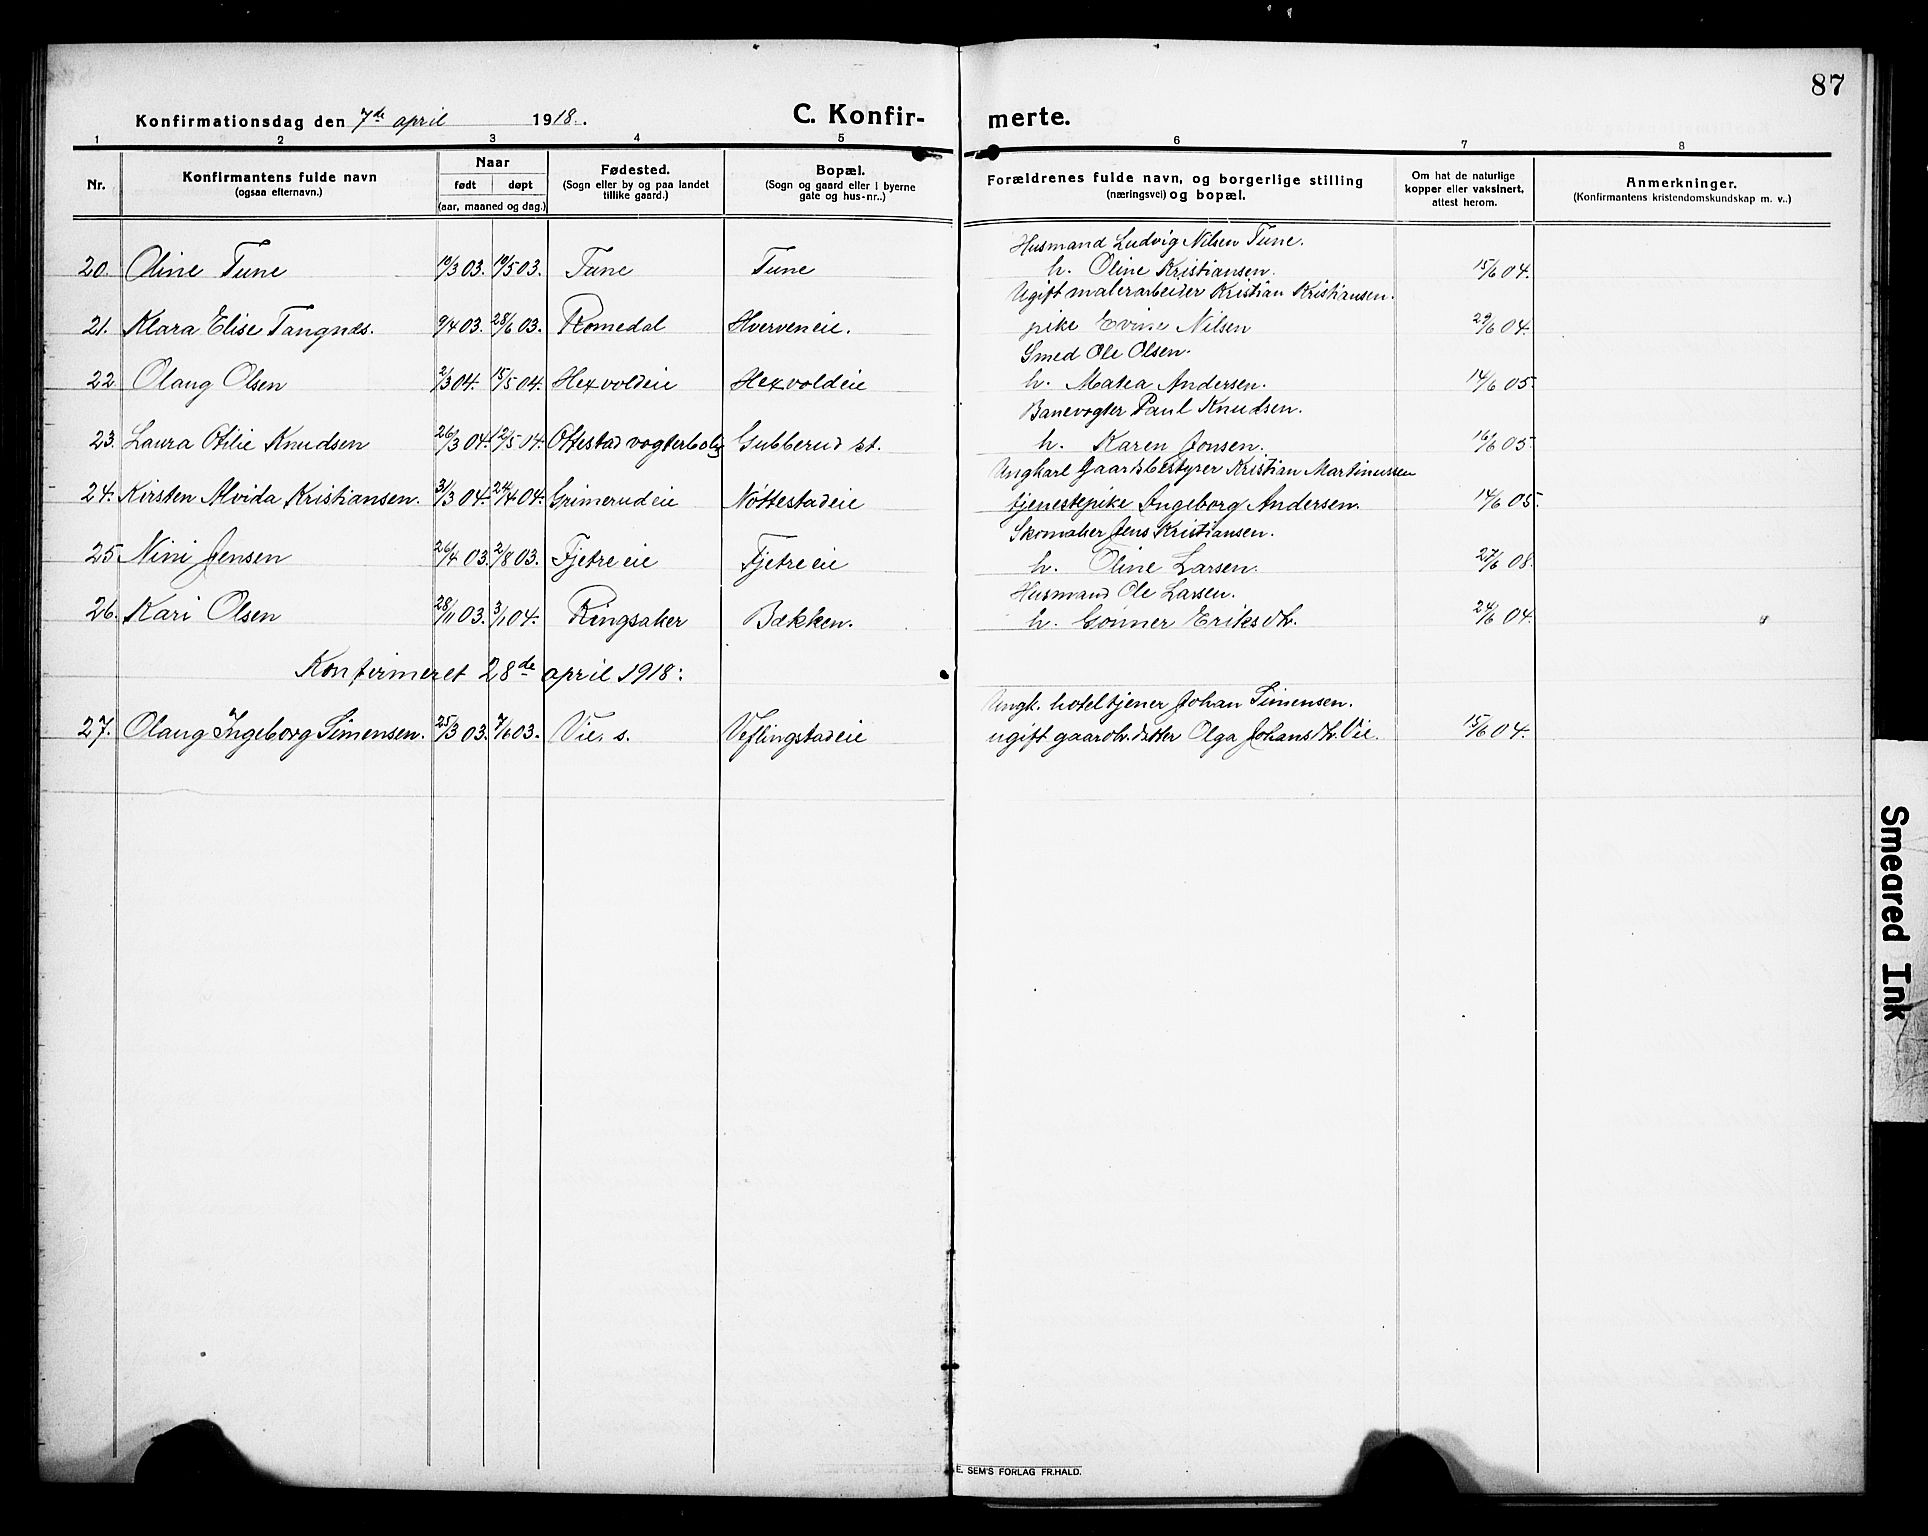 87
Konfirmationsdag den 7de april 1918. C. Konfir- merte.
1 2 3 4 5 6 7 8
Nr. Konfirmantens fulde navn (ogsaa efternavn.) Naar født døpt (aar, maaned og dag.) Fødested. (Sogn eller by og paa landet tillike gaard.) Bopæl. (Sogn og gaard eller i byerne gate og hus-nr..) Forældrenes fulde navn, og borgerlige stilling (næringsvei) og bopæl. Om hat de naturlige kopper eller vaksinert, attest herom. Anmerkninger. (Konfirmantens kristendomskundskap m. v..)
Husmand Ludvig Nilsen Tune.
20. Oline Tune 19/3 03. 19/5 03. Tune Tune h. Oline Kristiansen. 15/6 04.
Ugift malerarbeider Kristian Kristiansen.
21. Klara Elise Tangnes. 9/4 03. 28/6 03. Romedal Hverveneie. pike Evine Nilsen 29/6 04.
Smed Ole Olsen.
22 Olaug Olsen 2/3 04. 15/5 04. Hexvoldeie Hexvoldeie h. Matea Andersen. 14/6 05.
Banevogter Paul Knudsen.
23. Laura Otilie Knudsen 26/3 04. 12/5 04. Ottestad vogterbolig Gubberud st. h. Karen Jonsen. 16/6 05.
Ungkarl Gaardsbestyrer Kristian Martinussen
24. Kirsten Alvida Kristiansen. 31/3 04. 24/4 04. Grimerudeie Nøttestadeie tjenestepike Ingeborg Andersen. 14/6 05.
Skomaker Jens Kristiansen.
25 Nini Jensen 26/4 03. 2/8 03. Fjetreeie Fjetreeie h. Oline Larsen. 27/6 08.
Husmand Ole Larsen.
26. Kari Olsen 28/11 03. 3/1 04. Ringsaker Bækken. h. Gønner Eriksdtr. 24/6 04.
Konfirmeret 28de april 1918:
Ungk. hoteltjener Johan Simensen.
27. Olaug Ingeborg Simensen. 25/3 03. 7/6 03. Vie, s. Veflingstadeie ugift gaardbr.datter Olga Johansdtr. Vie. 15/6 04.
E. SEM'S FORLAG FR.HALD.
Smeared Ink